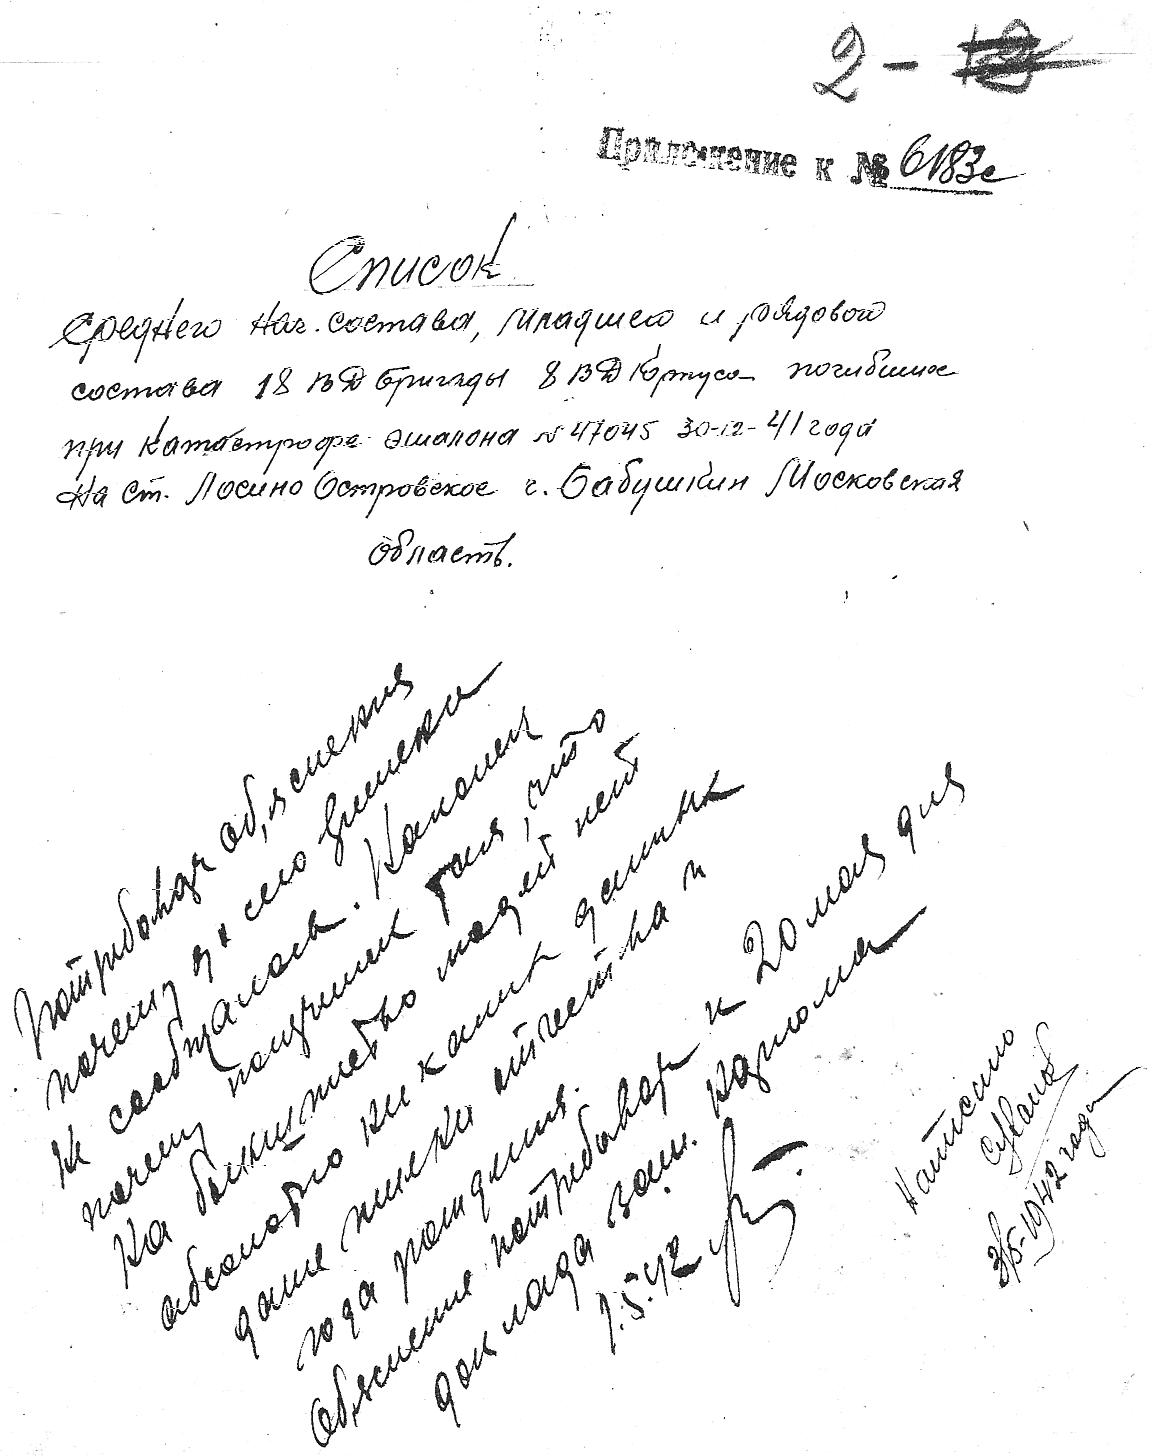 2 - 12
Приложение к № 6183с
Список
Среднего нач. состава, младшего и рядового
состава 18 ВД бригады 8 ВД Корпуса погибших
при катастрофе эшалона № 47045 30-12-41 года
на ст. Лосино Островское г. Бабушкин Московская
область.
Потребовать об,яснения
почему до сего времени
не сообщалось. Наконец
почему получили
на большинство людей нет
абсолютно ни каких данных
даже имени отчества и
года рождения.
Об,яснение потребовать к 20 мая для
доклада зам. наркома
1.5.42
Написано
3/5-1942 года